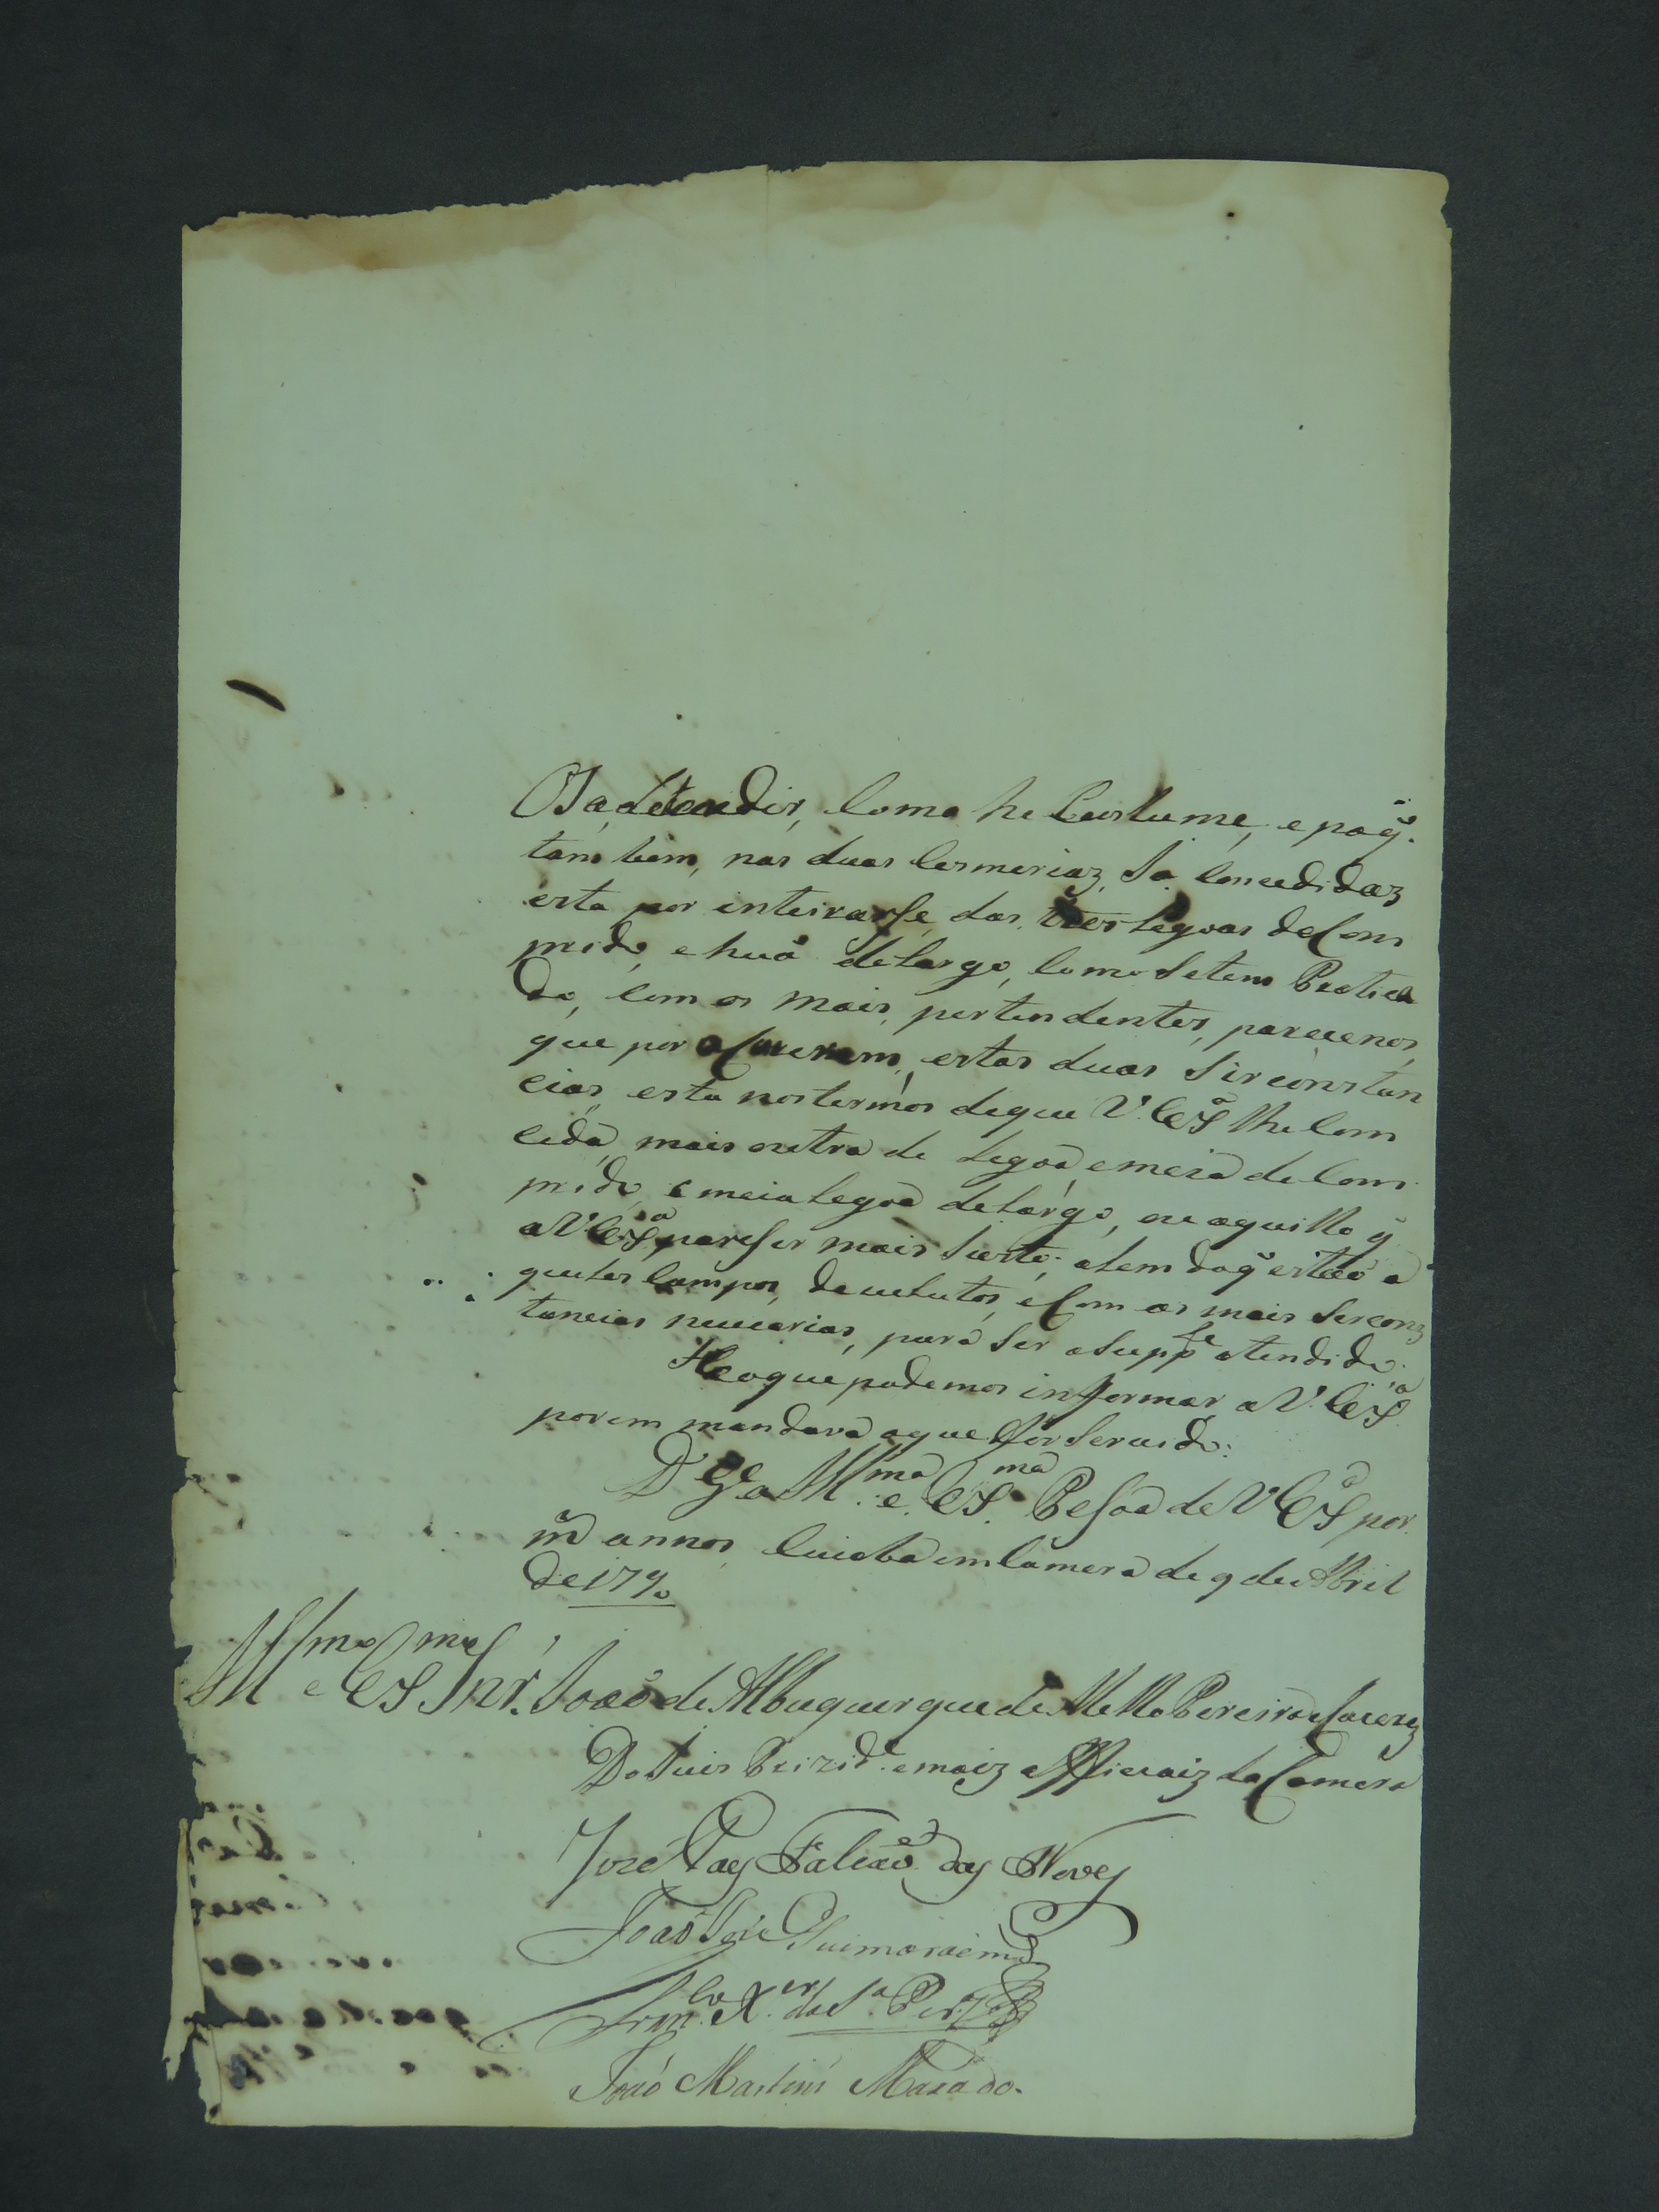 como he Custume, e pa q̃.
tam bem, nas duas Cesmeriaz, Ja Concedidaz
esta por inteirarse, das tres legoas de Com
prido, e huã de largo, como se tem Pratica
do, com os mais, pertendentes, parecenos,
que por estas duas Sirconstan
cias, esta nos termos de que V. Exª lhe Com
ceda, mais outra de legoa e meia de Com
prido, e meia legoa de largo, ou aquillo q̃
a V Exª pareser mais Serto; alem do q̃ estão a
queles Campos, devolutos, e Com as mais Serconz
tancias necesarias, para Ser o Suppe atendido.
He o que podemos informar a V. Exª
porem mandará o que for Servido.
D.s G.e a Illma e Exma Pesoa de V Exª por
m.s annos Cuiaba em Camera de 9 de Abril
de 1790
Illmo e Exmo Snr. João de Albuquerque de Mello Pereira e Caceres
Do Juis Prezide. e maiz Officiaiz da Camera
Jozé Paes Falcão das Neves
João Jose Guimaraens
Franco. Xer. da Sa. Perª
João Martins